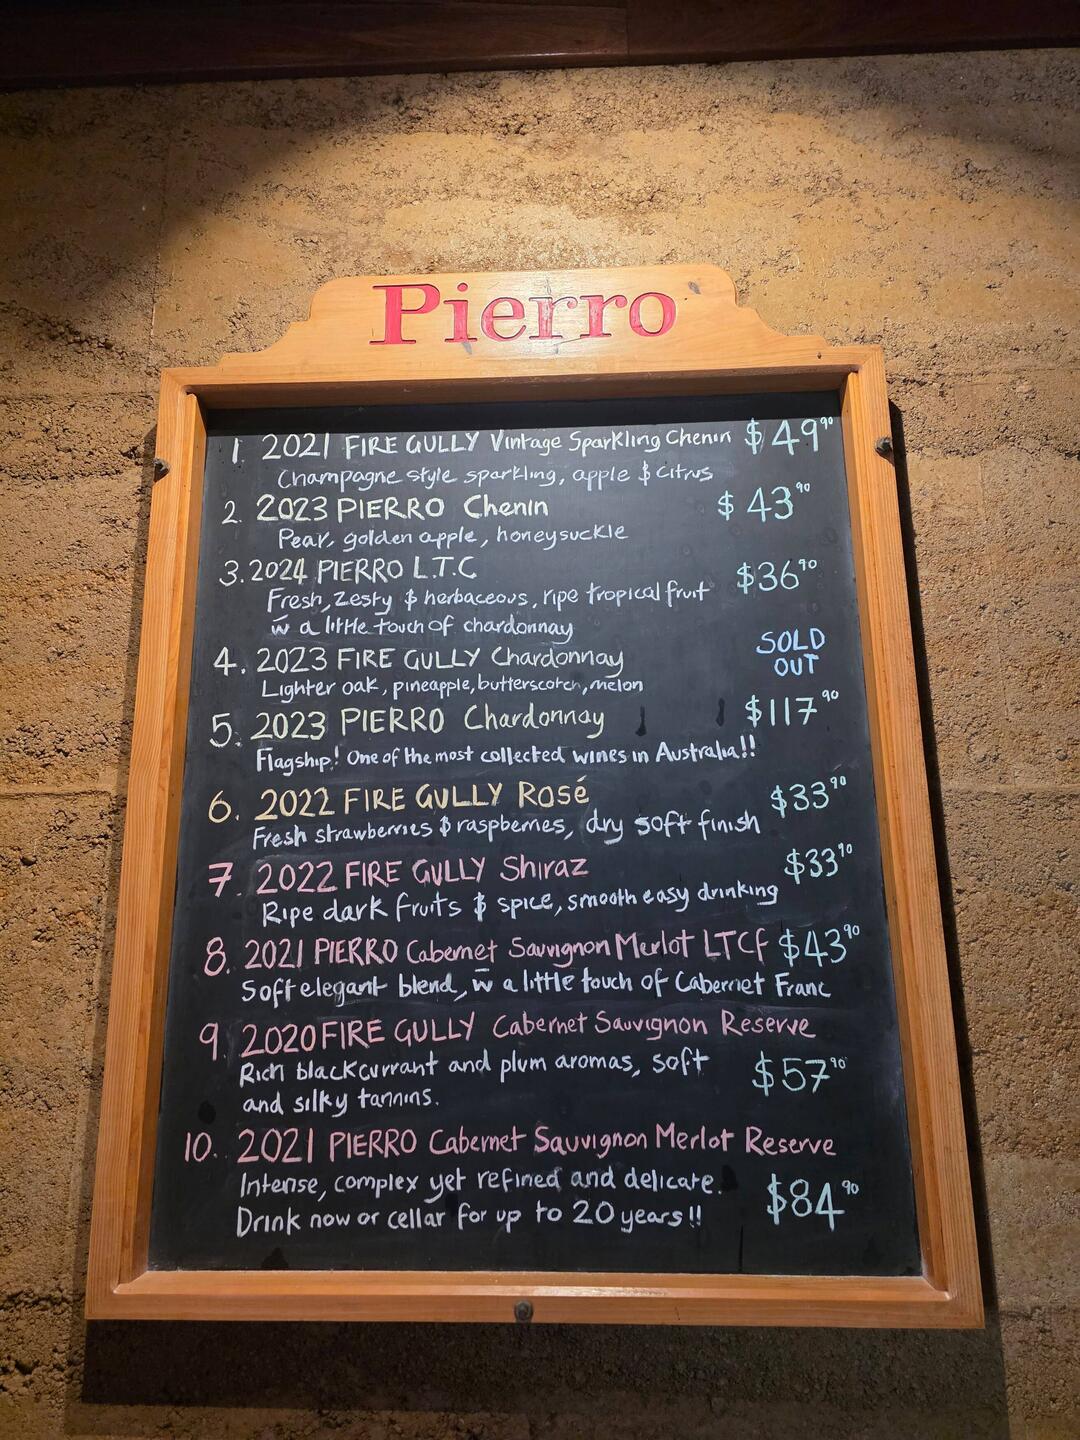 Pierro
1. 2021 FIRE GULLY Vintage Sparkling Chenin $49⁹⁰
Champagne style sparkling, apple & citrus
2. 2023 PIERRO Chenin $43⁹⁰
Pear, golden apple, honeysuckle
3. 2024 PIERRO L.T.C $36⁹⁰
Fresh, zesty & herbaceous, ripe tropical fruit
w̄ a little touch of chardonnay
4. 2023 FIRE GULLY Chardonnay SOLD OUT
Lighter oak, pineapple, butterscotch, melon
5. 2023 PIERRO Chardonnay $117⁹⁰
Flagship! One of the most collected wines in Australia!!
6. 2022 FIRE GULLY Rosé $33⁹⁰
Fresh strawberries & raspberries, dry soft finish
7. 2022 FIRE GULLY Shiraz $33⁹⁰
Ripe dark fruits & spice, smooth easy drinking
8. 2021 PIERRO Cabernet Sauvignon Merlot LTCf $43⁹⁰
Soft elegant blend, w̄ a little touch of Cabernet Franc
9. 2020 FIRE GULLY Cabernet Sauvignon Reserve
Rich blackcurrant and plum aromas, soft $57⁹⁰
and silky tannins.
10. 2021 PIERRO Cabernet Sauvignon Merlot Reserve
Intense, complex yet refined and delicate. $84⁹⁰
Drink now or cellar for up to 20 years!!